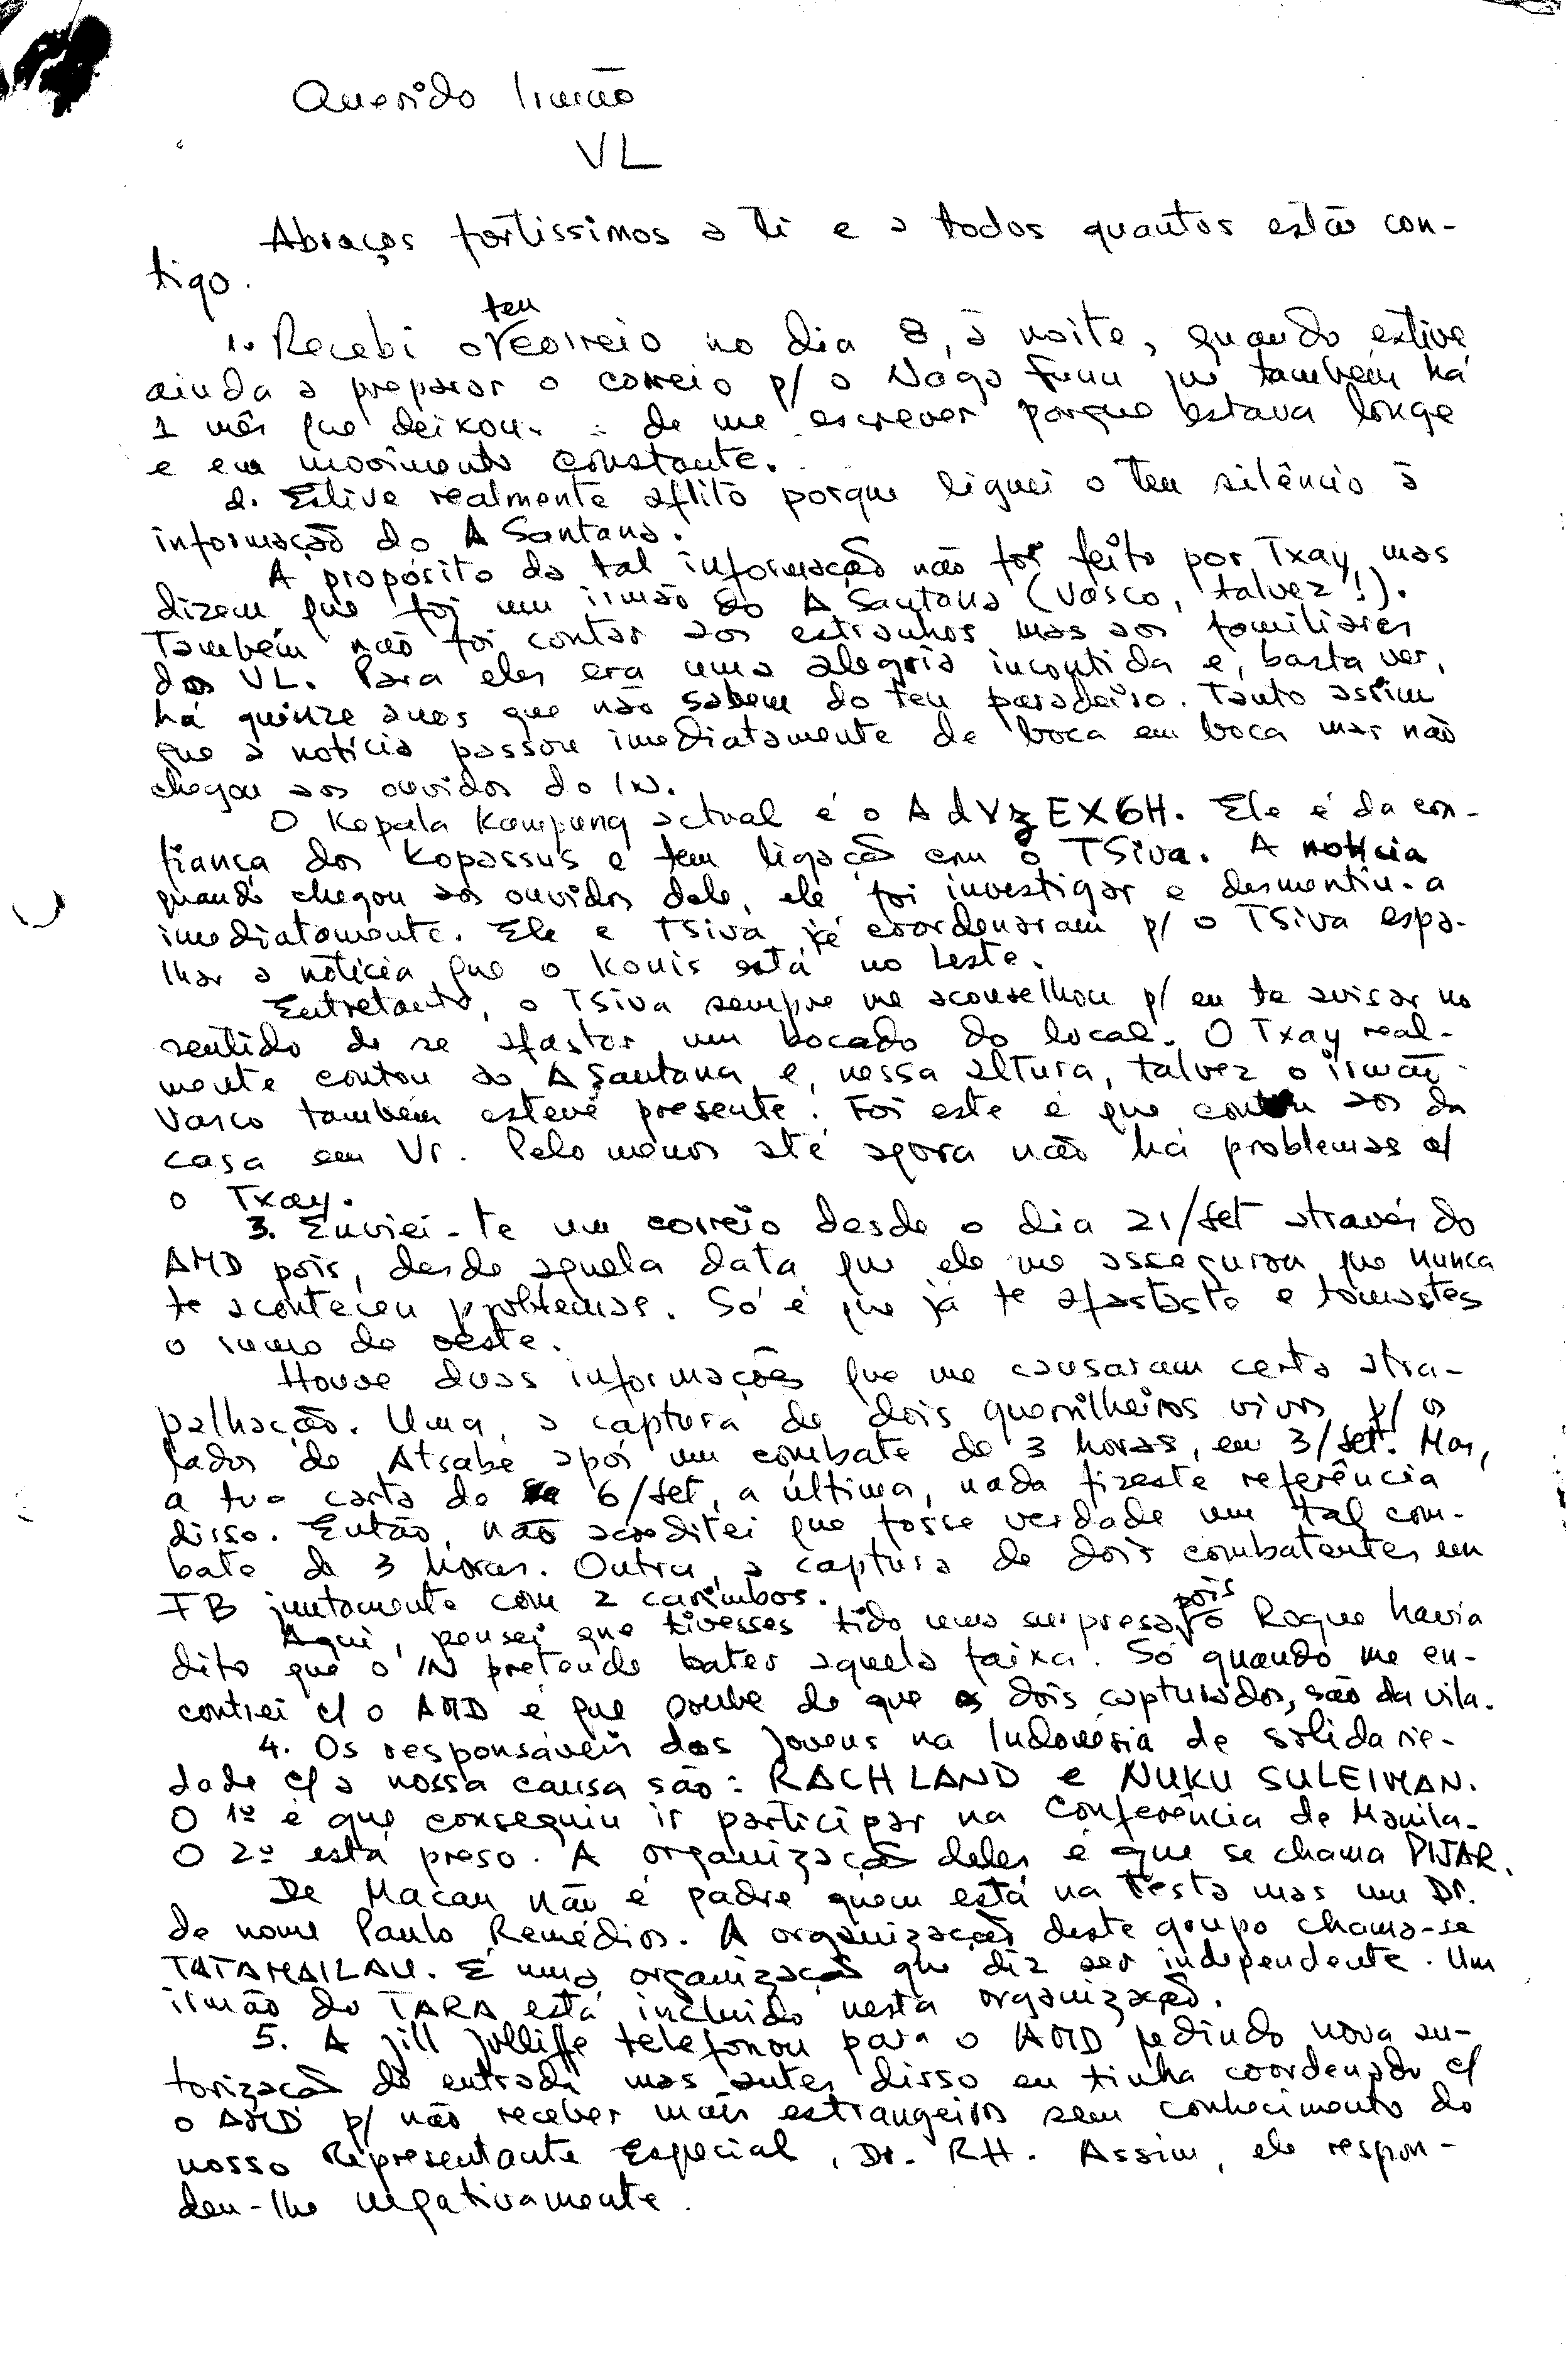 Querido Irmão
VL
Abraços fortíssimos a ti e a todos quantos estão con-
tigo.
teu
1. Recebi o correio no dia 8, à noite, quando estive
ainda a preparar o correio p/ o Nogo Funu que também há
1 mês que deixou de me escrever porque estava longe
e em movimento constante.
2. Estive realmente aflito porque liguei o teu silêncio à
informação do A Santana.
A propósito da tal informação não foi feito por Txay mas
dizem que foi um irmão do A Santana (Vasco, talvez!).
Também não foi contar aos estranhos mas aos familiares
dos VL. Para eles era uma alegria incontida e, basta ver,
há quinze anos que não sabem do teu paradeiro. Tanto assim
que a notícia passou imediatamente de boca em boca mas não
chegou aos ouvidos do IN.
O Kepala Kampung actual é o A d V z E X 6 H. Ele é da con-
fiança dos Kopassus e tem ligação com o TSiva. A notícia
quando chegou aos ouvidos dele, ele foi investigar e desmentiu-a
imediatamente. Ele e TSiva já coordenaram p/ o TSiva espa-
lhar a notícia que o Konis está no Leste.
Entretanto, o TSiva sempre me aconselhou p/ eu te avisar no
sentido de se afastar um bocado do local. O Txay real-
mente contou ao A Santana e, nessa altura, talvez o irmão
Vasco também esteve presente. Foi este é que contou aos da
casa em Vr. Pelo menos até agora não há problemas c/
o Txay.
3. Enviei-te um correio desde o dia 21/Set através do
AMD pois, desde aquela data que ele me assegurou que nunca
te aconteceu problemas. Só é que já te afastaste e tomastes
o rumo do oeste.
Houve duas informações que me causaram certa atra-
palhação. Uma, a captura de dois guerrilheiros vivos p/ os
lados de Atsabe após um combate de 3 horas, em 3/Set. Mas,
a tua carta de 6/Set, a última, nada fizeste referência
disso. Então, não acreditei que fosse verdade um tal com-
bate de 3 horas. Outra, a captura de dois combatentes em
FB juntamente com 2 carimbos.
pois
Aqui, pensei que tivesses tido uma surpresa, o Roque havia
dito que o IN pretende bater aquela faixa. Só quando me en-
contrei c/ o AMD é que soube de que os dois capturados, são da vila.
4. Os responsáveis dos jovens na Indonésia de solidarie-
dade c/ a nossa causa são: RACHLAND e NUKU SULEIMAN.
O 1º é que conseguiu ir participar na Conferência de Manila.
O 2º está preso. A organização deles é que se chama PIJAR.
De Macau não é padre quem está na testa mas um Dr.
de nome Paulo Remédios. A organização deste grupo chama-se
TATAMAILAU. É uma organização que diz ser independente. Um
irmão do TARA está incluido nesta organização.
5. A Jill Jolliffe telefonou para o AMD pedindo nova au-
torização de entrada mas antes disso eu tinha coordenado c/
o AMD p/ não receber mais estrangeiros sem conhecimento do
nosso Representante Especial, Dr. RH. Assim, ele respon-
deu-lhe negativamente.